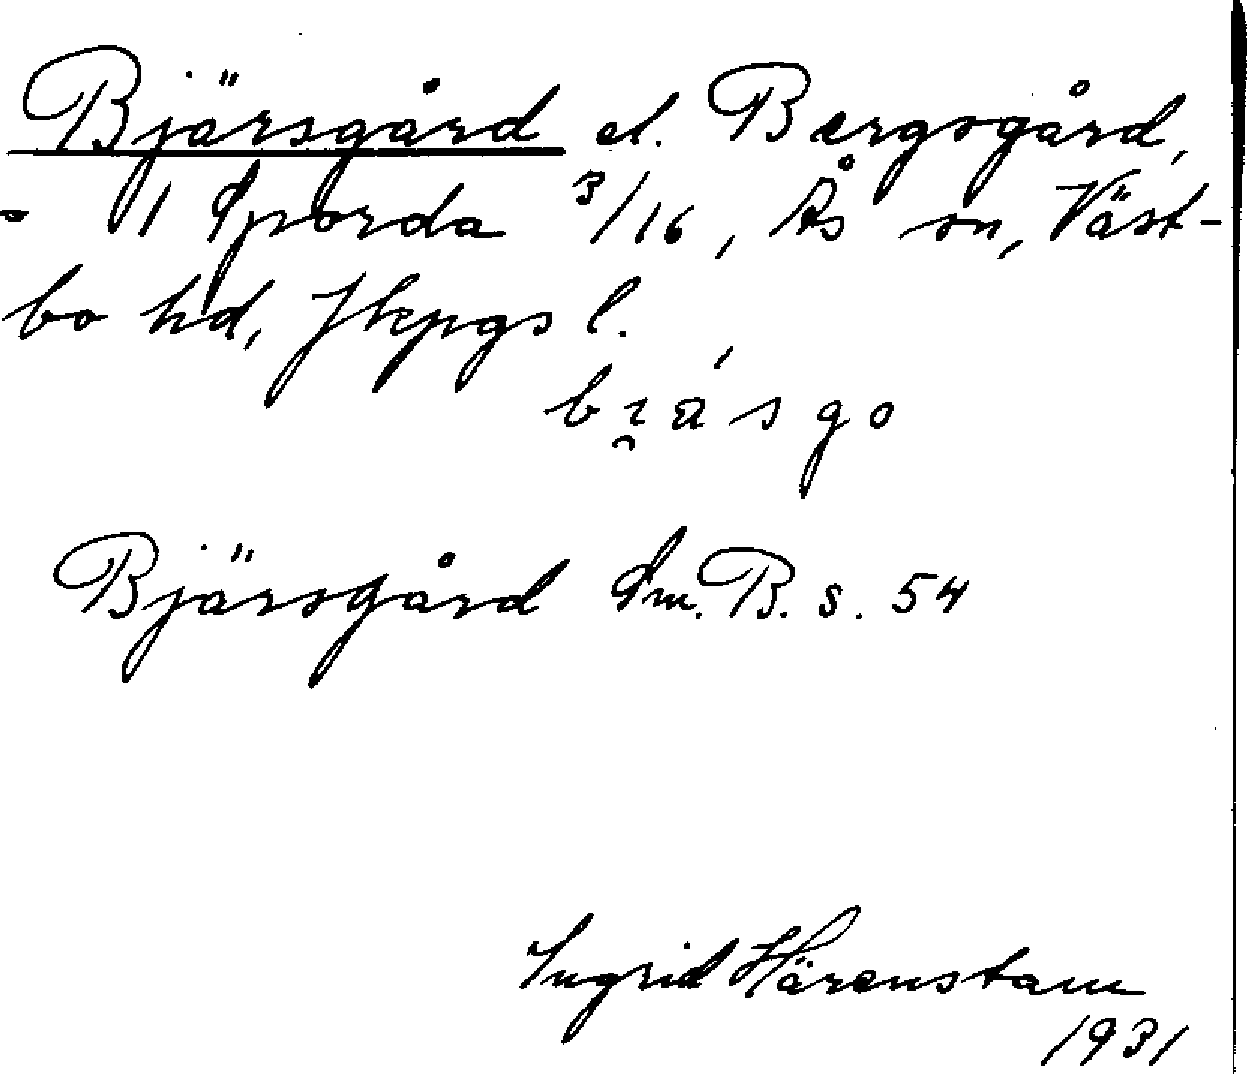 Bjärsgård el. Bergsgård,
= 1 Sporda 3/16, Ås sn, Väst-
bo hd, Jkpgs l.
bi̯ásgo
Bjärsgård Sm. B. s. 54
Ingrid Härenstam
1931